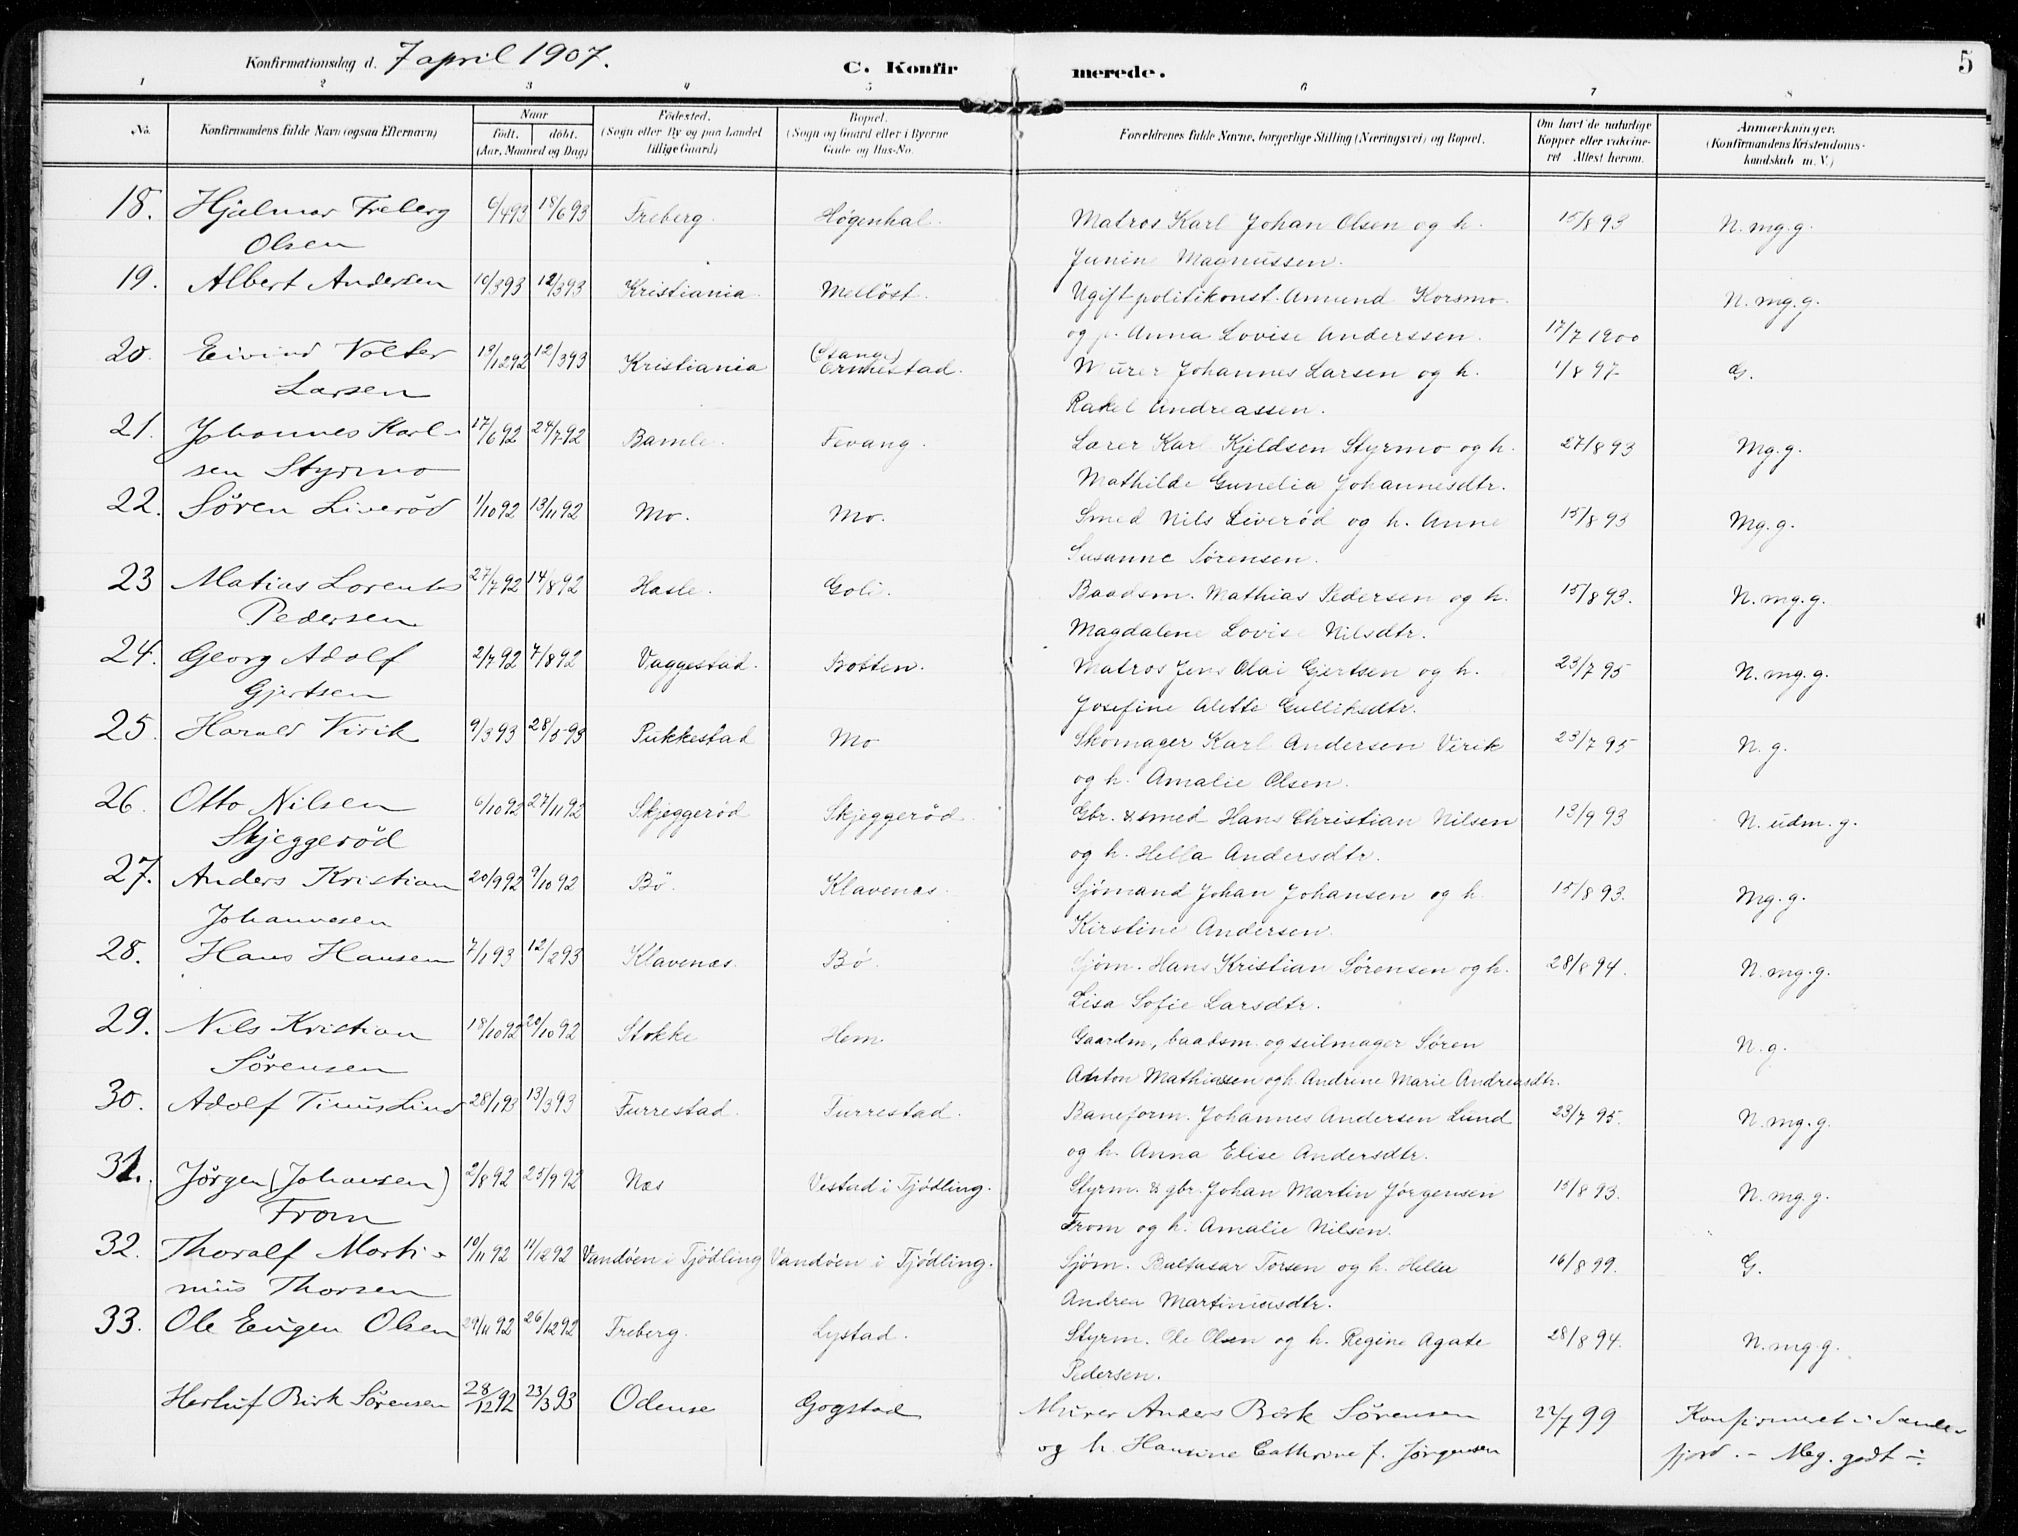 Konfirmationsdag d. 7 april 1907.
C. Konfir merede.
5
1 2 3 4 5 6 7 8
No.
Konfirmandens fulde Navn (ogsaa Efternavn)
Naar
født. døbt.
(Aar, Maaned og Dag)
Fødested.
(Sogn eller By og paa Landet
tillige Gaard)
Bopæl.
(Sogn og Gaard eller i Byerne
Gade og Hus-No.
Forældrenes fulde Navne, borgerlige Stilling (Næringsvei) og Bopæl.
Om havt de naturlige
Kopper eller vakcine-
ret Attest herom.
Anmærkninger.
(Konfirmandens Kristendoms-
kundskab m. V.)
18. Hjalmar Freberg 6/4 93 18/6 93 Freberg. Høgenhal. Matros Karl Johan Olsen og h. 15/8 93 N. mg. g.
Olsen Junine Magnussen.
19. Albert Andersen 10/3 93 12/3 93 Kristiania. Melløst. Ugift politikonst. Amund Korsmo N. mg. g.
og p. Anna Lovise Anderssen. 17/7 1900
20. Eivind Volter 19/12 92 12/3 93 Kristiania (Stange) Ernnestad. Murer Johannes Larsen og h. 1/8 97 G.
Larsen Rakel Andreassen.
21. Johannes Karl- 17/6 92 24/7 92 Bamle. Fevang. Lærer Karl Kjeldsen Styrmo og h. 27/8 93 Mg. g.
sen Styrmo Mathilde Gunelia Johannesdtr.
22. Søren Liverød 1/10 92 13/11 92 Mo. Mo. Smed Nils Liverød og h. Anne 15/8 93 Mg. g.
Susanne Sørensen.
23 Matias Lorents 27/7 92 14/8 92 Hasle. Goli. Baadsm. Mathias Pedersen og h. 15/8 93. N. mg. g.
Pedersen Magdalene Lovise Nilsdtr.
24. Georg Adolf 2/7 92 7/8 92 Vaggestad. Botten. Matros Jens Olai Gjertsen og h. 23/7 95 N. mg. g.
Gjertsen Josefine Alette Gulliksdtr.
25. Harald Virik 9/3 93 28/5 93 Pukkestad Mo Skomager Karl Andersen Virik 23/7 95 N. g.
og h. Amalie Olsen.
26. Otto Nilsen 6/10 92 27/11 92 Skjeggerød Skjeggerød. Gbr. & smed Hans Christian Nilsen 13/9 93 N. udm. g.
Skjeggerød og h. Hella Andersdtr.
27. Anders Kristian 20/9 92 9/10 92 Bø. Klavenæs. Sjømand Johan Johansen og h. 15/8 93. Mg. g.
Johannesen Kirstine Andersen.
28. Hans Hansen 7/1 93 12/2 93 Klavenæs. Bø. Sjøm. Hans Kristian Sørensen og h. 28/8 94. N. mg. g.
Lisa Sofie Larsdtr.
29. Nils Kristian 18/10 92 20/10 92 Stokke Hem Gaardm, baadsm. og seilmager Søren N. g.
Sørensen Anton Mathiasen og h. Andrine Marie Andreasdtr.
30. Adolf Tinius Lund 28/1 93 13/3 93 Furrestad. Furrestad. Baneform. Johannes Andersen Lund 23/7 95. N. mg. g.
og h. Anna Elise Andersdtr.
31. Jørgen (Johansen) 2/8 92 25/9 92 Næs Vestad i Tjødling. Styrm. & gbr. Johan Martin Jørgensen 15/8 93. N. mg. g.
From From og h. Amalie Nilsen.
32. Thoralf Marti- 10/11 92 11/12 92 Vandøen i Tjødling Vandøen i Tjødling. Sjøm. Baltasar Torsen og h. Hella 16/8 99. G.
nius Thorsen Andrea Martiniusdtr.
33. Ole Eugen Olsen 29/11 92 26/12 92 Freberg. Lystad. Styrm. Ole Olsen og h. Regine Agate 28/8 94. N. mg. g.
Pedersen.
Herluf Birk Sørensen 28/12 92 23/3 93 Odense Gogstad Murer Anders Birk Sørensen 22/7 99 Konfirmeret i Sande-
og h. Hansine Cathrine f. Jørgensen fjord. - Meg. godt ÷.